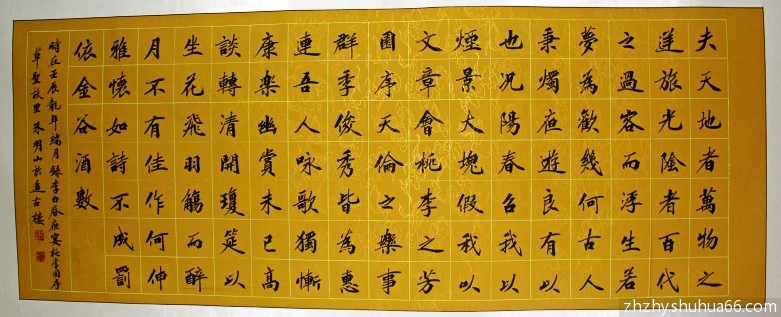 夫天地者萬物之
逆旅光陰者百代
之過客而浮生若
夢為歡幾何古人
秉燭夜遊良有以
也况陽春召我以
煙景大塊假我以
文章會桃李之芳
園序天倫之樂事
群季俊秀皆為惠
連吾人咏歌獨慚
康樂幽賞未已高
談轉清開瓊筵以
坐花飛羽觴而醉
月不有佳作何伸
雅懷如詩不成罰
依金谷酒數
時在壬辰龍年端月錄李白春夜宴桃李園序
草聖故里朱明山於追古樓
zhzhyshuhua66.com